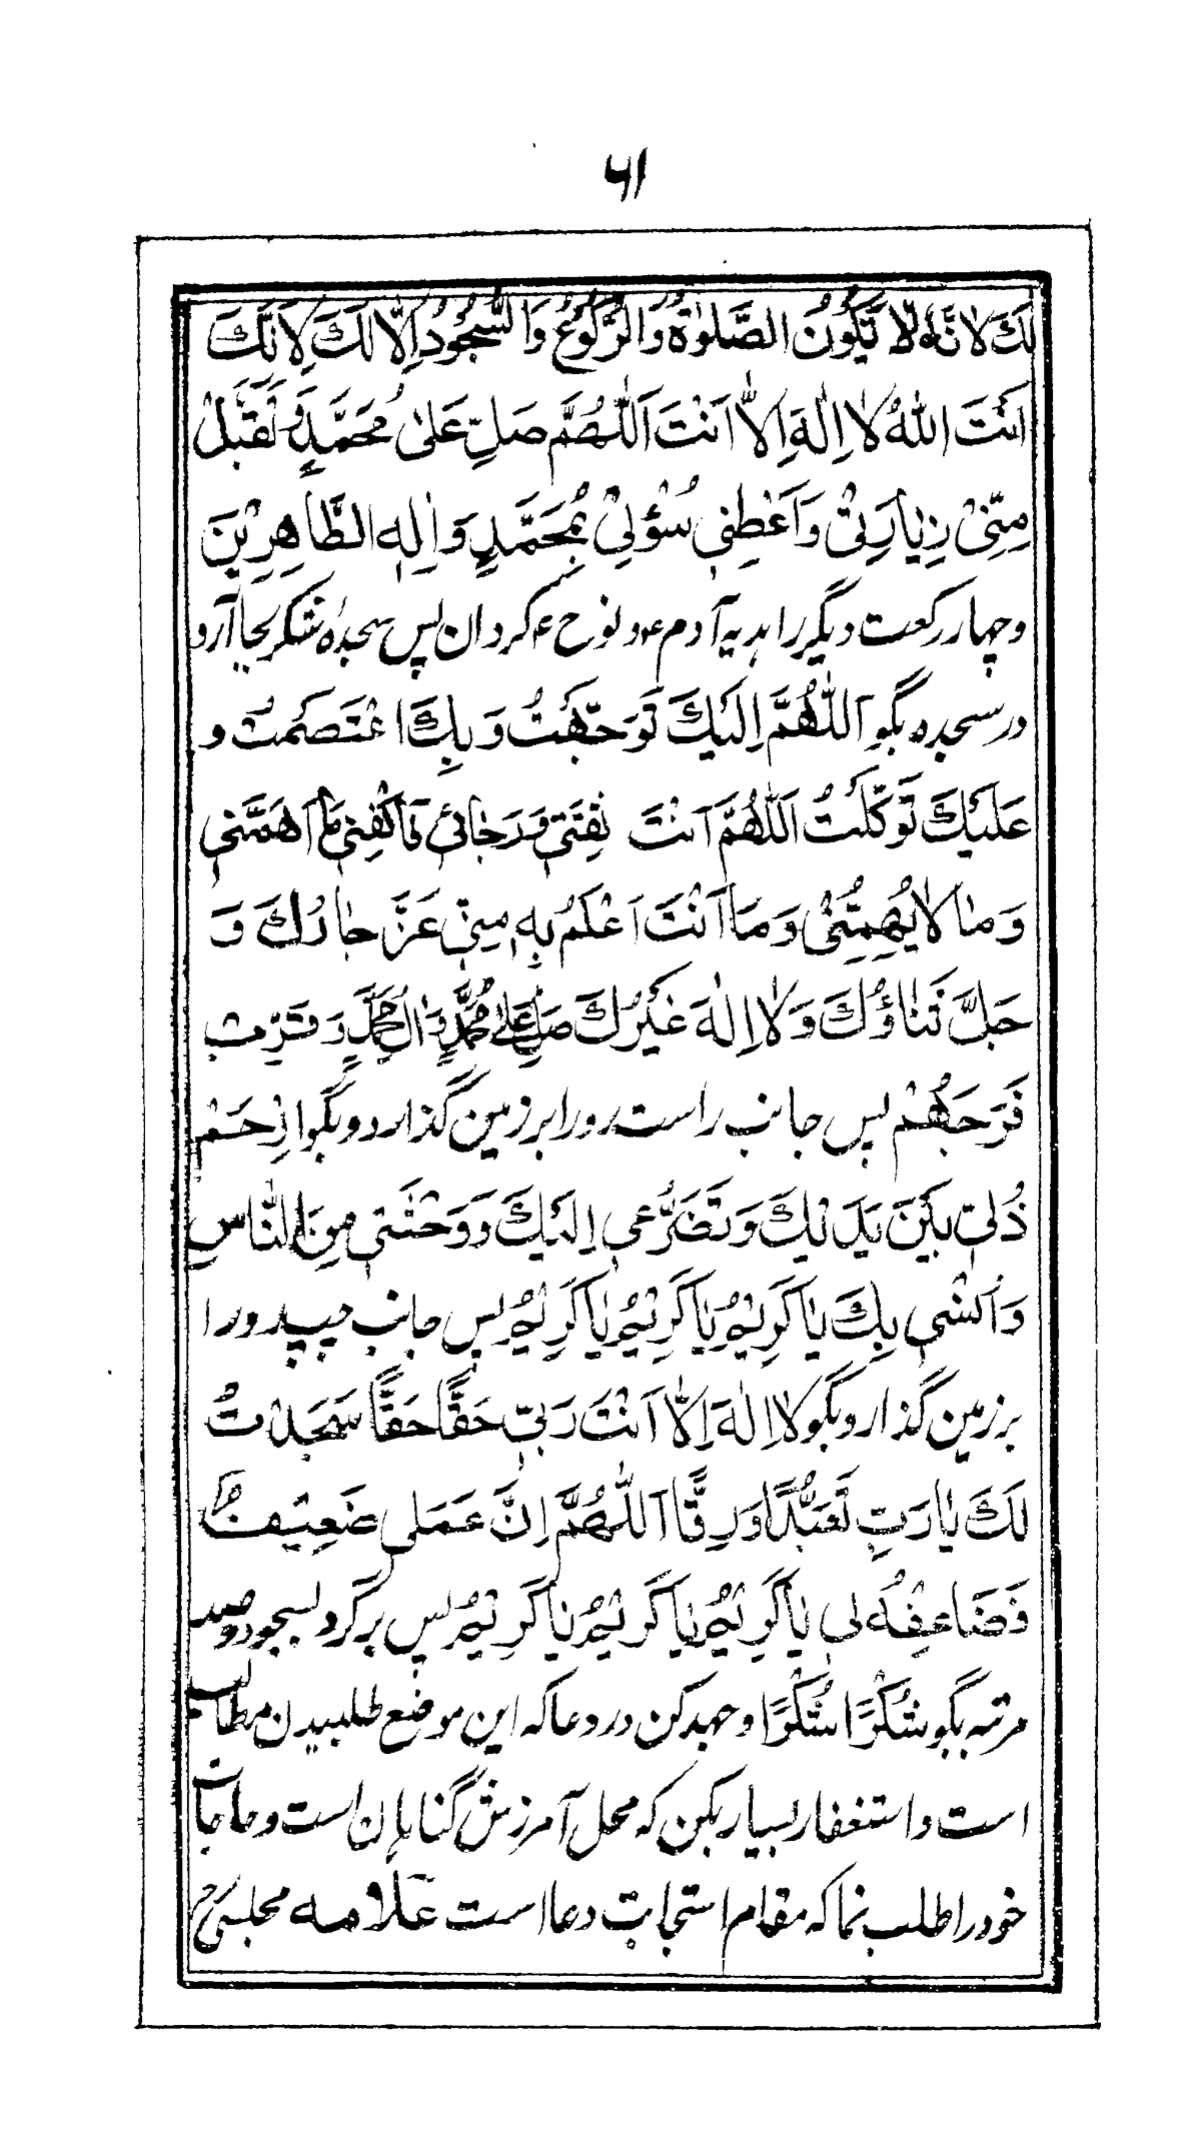 ۶۱
لَكَ لِاَنَّهٗ لَا تَكُوْنُ الصَّلٰوةُ وَالرُّكُوْعُ وَالسُّجُوْدُ اِلَّا لَكَ لِاَنَّكَ
اَنْتَ اللّٰهُ لَا اِلٰهَ اِلَّا اَنْتَ اَللّٰهُمَّ صَلِّ عَلٰى مُحَمَّدٍ وَتَقَبَّلْ
مِنِّىْ زِيَارَتِىْ وَاَعْطِنِىْ سُؤْلِىْ بِمُحَمَّدٍ وَاٰلِهِ الطَّاهِرِيْنَ
و چهار ركعت ديگر را هديه آدم ع و نوح ع گردان پس سجدهٔ شكر بجا آر و
در سجده بگو اَللّٰهُمَّ اِلَيْكَ تَوَجَّهْتُ وَبِكَ اعْتَصَمْتُ وَ
عَلَيْكَ تَوَكَّلْتُ اَللّٰهُمَّ اَنْتَ ثِقَتِىْ وَرَجَائِىْ فَاكْفِنِىْ مَا اَهَمَّنِىْ
وَمَا لَا يُهِمُّنِىْ وَمَا اَنْتَ اَعْلَمُ بِهٖ مِنِّىْ عَزَّ جَارُكَ وَ
جَلَّ ثَنَاؤُكَ وَلَا اِلٰهَ غَيْرُكَ صَلِّ عَلٰى مُحَمَّدٍ وَاٰلِ مُحَمَّدٍ وَقَرِّبْ
فَرَجَهُمْ پس جانب راست رو را بر زمين گذارد و بگو اِرْحَمْ
ذُلِّىْ بَيْنَ يَدَيْكَ وَتَضَرُّعِىْ اِلَيْكَ وَوَحْشَتِىْ مِنَ النَّاسِ
وَاُنْسِىْ بِكَ يَا كَرِيْمُ يَا كَرِيْمُ يَا كَرِيْمُ پس جانب چپ رو را
بر زمين گذار و بگو لَا اِلٰهَ اِلَّا اَنْتَ رَبِّىْ حَقًّا حَقًّا سَجَدْتُ
لَكَ يَا رَبِّ تَعَبُّدًا وَرِقًّا اَللّٰهُمَّ اِنَّ عَمَلِىْ ضَعِيْفٌ
فَضَاعِفْهُ لِىْ يَا كَرِيْمُ يَا كَرِيْمُ يَا كَرِيْمُ پس برگرد بسجود و صد
مرتبه بگو شُكْرًا شُكْرًا و جهد كن در دعا كه اين موضع طلبيدن مطالب
است و استغفار بسيار بكن كه محل آمرزش گناهان است و حاجات
خود را طلب نما كه مقام استجابت دعا است علامه مجلسى رح